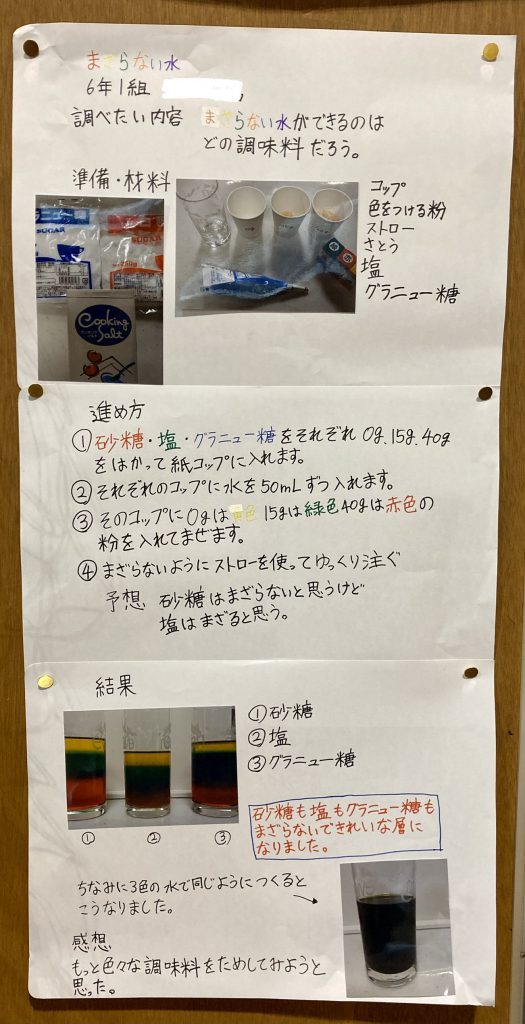 まざらない水
6年1組
調べたい内容 まざらない水ができるのは
どの調味料だろう。
準備・材料
コップ
色をつける粉
ストロー
さとう
塩
グラニュー糖
Cooking
Salt
進め方
①砂糖・塩・グラニュー糖をそれぞれ0g.15g.40g
をはかって紙コップに入れます。
②それぞれのコップに水を50mLずつ入れます。
③そのコップに0gは黄色 15gは緑色40gは赤色の
粉を入れてまぜます。
④まざらないようにストローを使ってゆっくり注ぐ
予想 砂糖はまざらないと思うけど
塩はまざると思う。
結果
①砂糖
②塩
③グラニュー糖
① ② ③
砂糖も塩もグラニュー糖も
まざらないできれいな層に
なりました。
ちなみに3色の水で同じようにつくると
こうなりました。
感想
もっと色々な調味料をためしてみようと
思った。